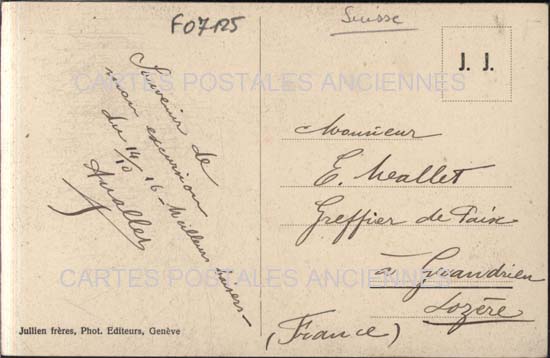 F07125
Suisse
J. J.
CARTES POSTALES ANCIENNES
Souvenir de
mon excursion
du 14/10 16 - Meilleurs baisers -
Monsieur
E. Meallet
Greffier de Paix
à Grandrieu
Lozère
(France)
CARTES POSTALES ANCIENNES
Jullien frères, Phot. Editeurs, Genève